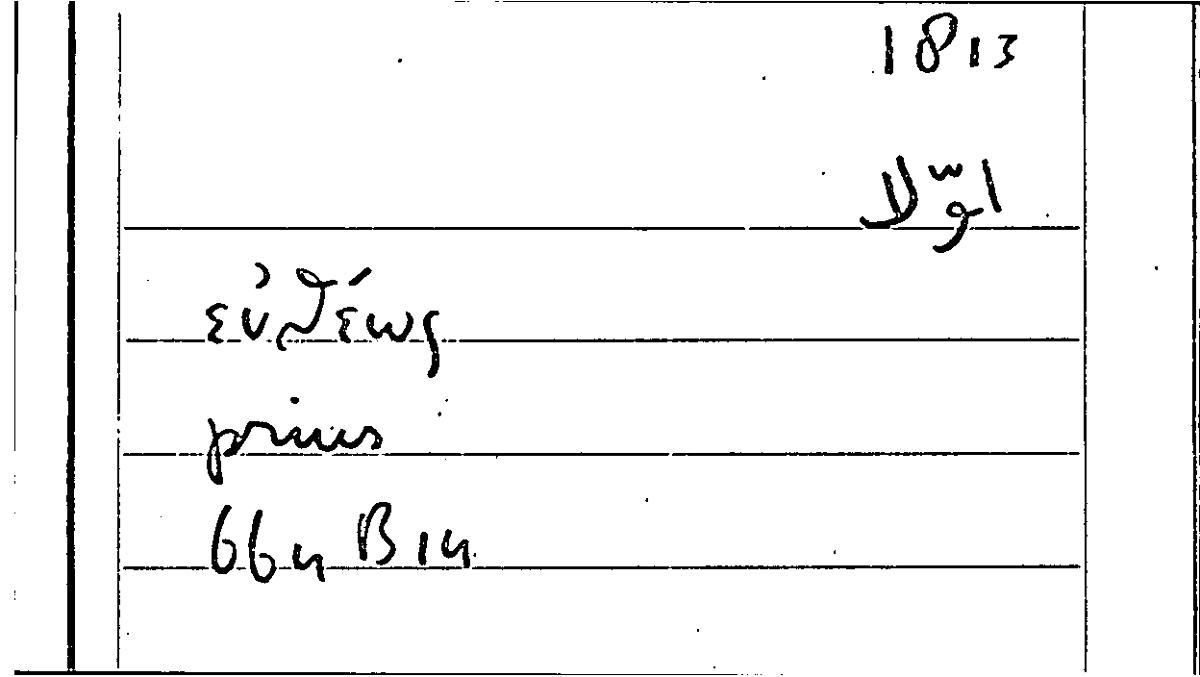 1813
اوّلا
εὐθέως
prius
664 B 14